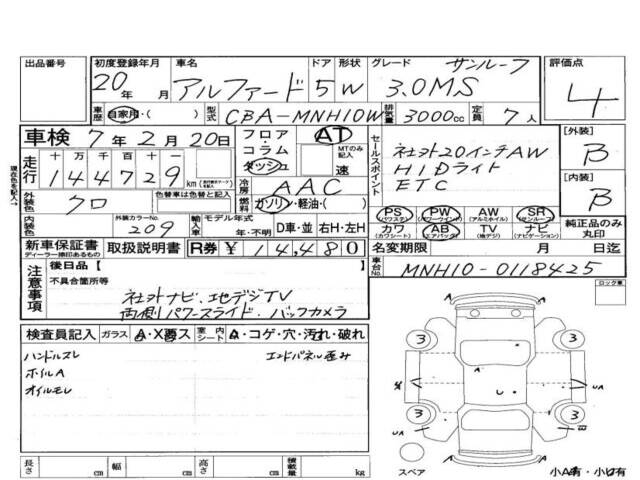 出品番号
初度登録年月 車名 ドア 形状 グレード サンルーフ 評価点
20年 月 アルファード 5 W 3.0MS 4
車歴 自家用・( ) 型式 CBA-MNH10W 排気量 3000cc 定員 7人
車検 7年2月20日 フロア AT
コラム MTのみ記入
ダッシュ 速
走行 十万千百十一
144729 km
現在色を記入→
セールスポイント
社外20インチAW
HIDライト
ETC
[外装]
B
[内装]
B
冷房 AAC
外装色 クロ 色替車は色替と記入 燃料 ガソリン・軽油・( )
内装色 外装カラーNo. 209 輸入車 モデル年式 年・不明 D車・並 右H・左H
PS (パワステ) PW (パワーウインド) AW (アルミホイル) SR (サンルーフ)
カワ (カワシート) AB (エアバッグ) TV (地デジ) ナビ (ナビゲーション)
純正品のみ丸印
新車保証書 ディーラー捺印あるもの 取扱説明書 R券 ¥14,480 名変期限 月 日迄
車台No. MNH10-0118425
ロック車
注意事項
後日品【 】
不具合箇所等
社外ナビ、地デジTV
両側パワースライド、バックカメラ
検査員記入 ガラス A・X要ス 室内シート A・コゲ・穴・汚れ・破れ
ハンドルスレ エンドパネル歪み
ホイルA
オイルモレ
A A
3 3
A UA
3 3
UA
スペア
A A
小A有・小U有
長さ cm 幅 cm 高さ cm 積載量 kg